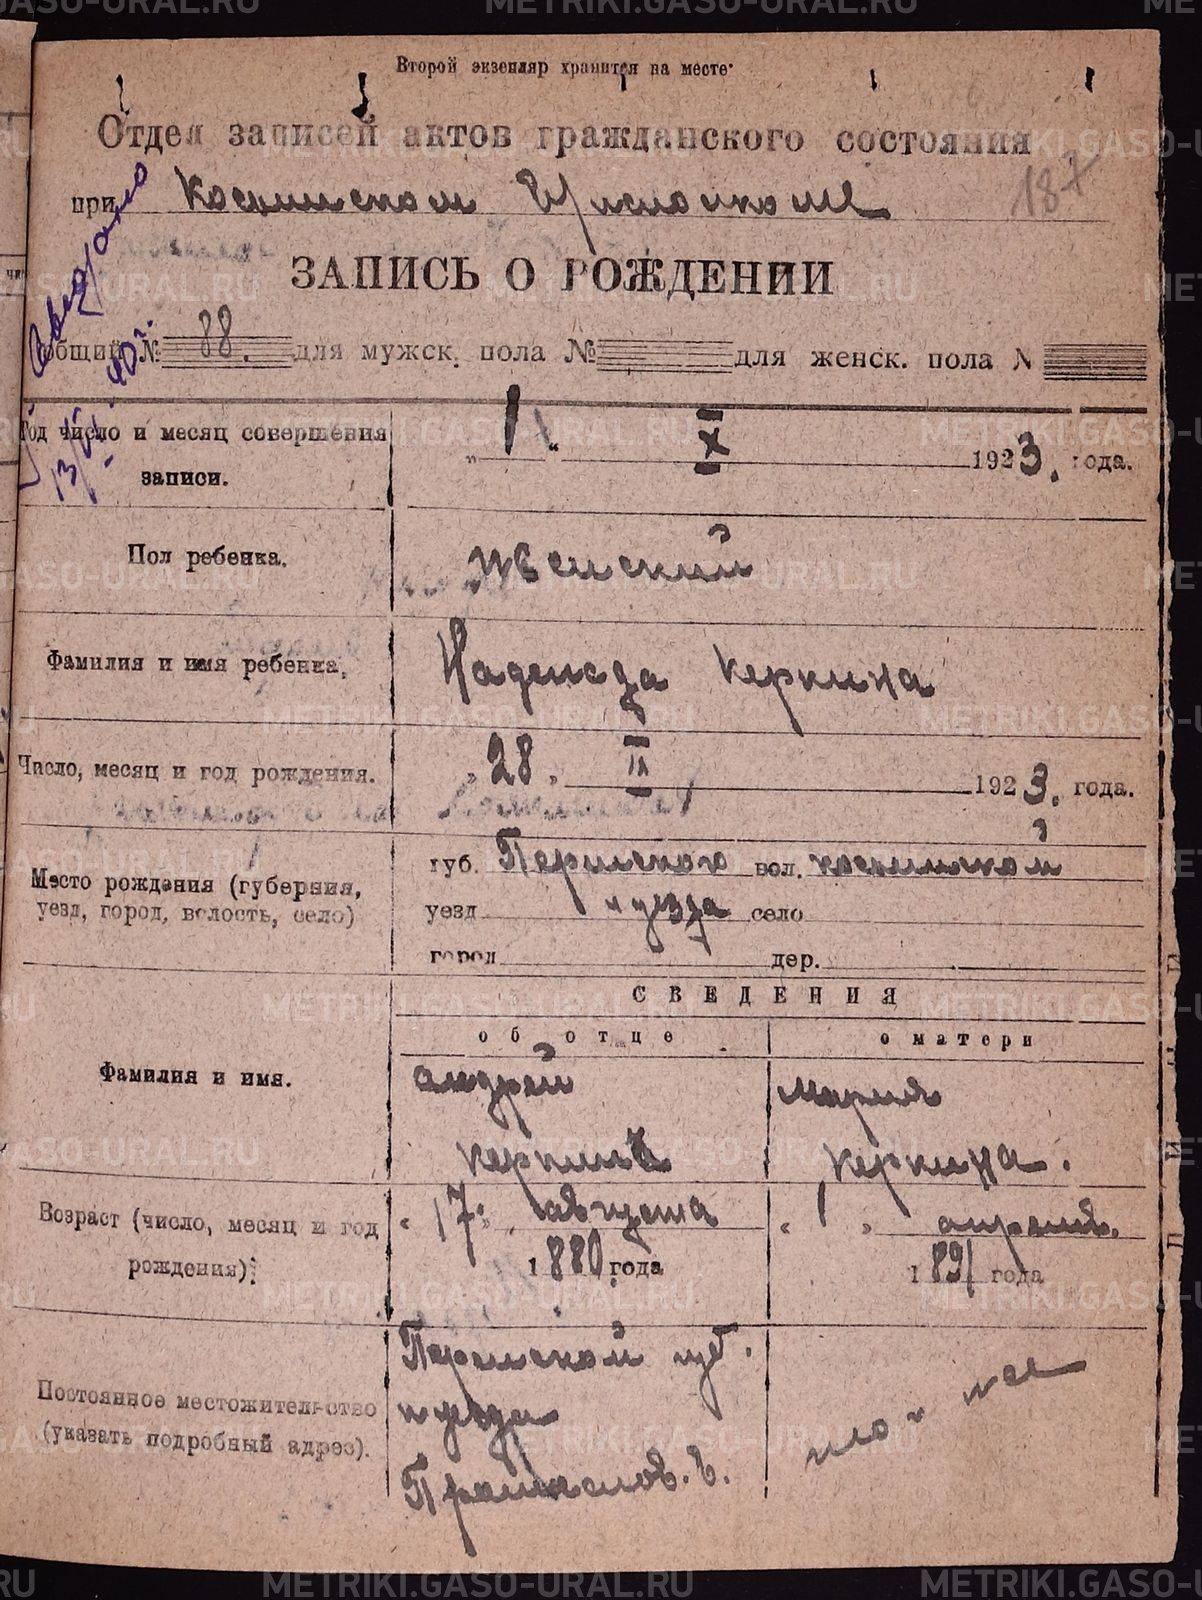 Второй экземпляр хранится на месте
Отдел записей актов гражданского состояния
при
187
ЗАПИСЬ О РОЖДЕНИИ
общий № 88. для мужск. пола № для женск. пола №
Год число и месяц совершения записи. „1“ X 1923. года.
Пол ребенка. женский
Фамилия и имя ребенка. Надежда Керкина
Число, месяц и год рождения. „28„ IX 1923. года.
Место рождения (губерния, уезд, город, волость, село)
губ. Пермского вол. косьинской
уезд уезда село
город дер.
СВЕДЕНИЯ
об отце о матери
Фамилия и имя.
андрей Мария
Керкина.
Возраст (число, месяц и год рождения).
„17„ августа „1„ апреля.
1880 года 1891 года
Постоянное местожительство (указать подробный адрес).
Пермской губ.
уезда
METRIKI.GASO-URAL.RU